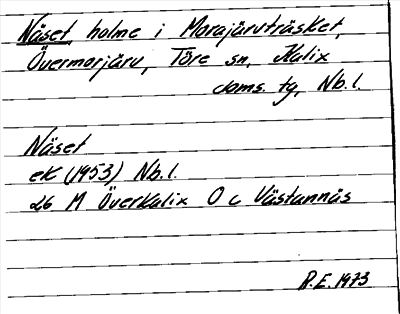 Näset, holme i Morajärvträsket,
Övermorjärv, Töre sn, Kalix
doms. tg, Nb. l.
Näset
ek (1953) Nb. l.
26 M Överkalix O c Västannäs
R.E. 1973